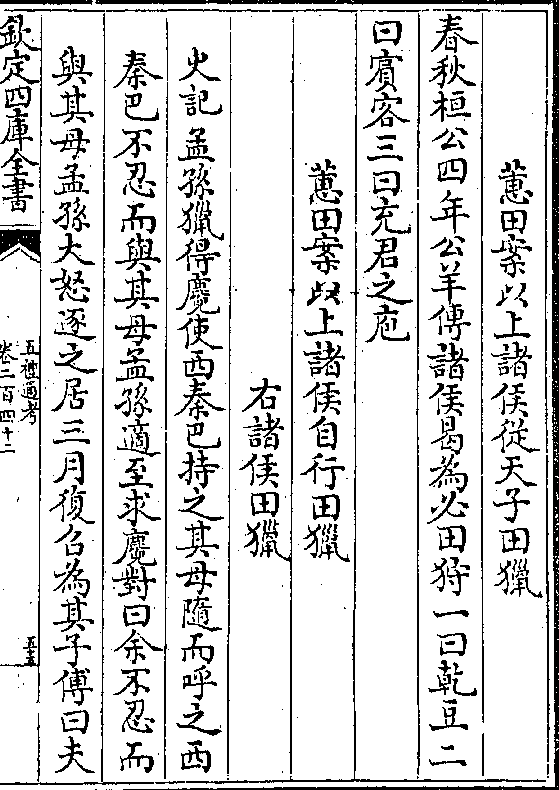 蕙田案以上諸侯從天子田獵
春秋桓公四年公羊傳諸侯曷為必田狩一曰乾豆二
曰賓客三曰充君之庖
蕙田案以上諸侯自行田獵
右諸侯田獵
史記孟孫獵得麑使西秦巴持之其母隨而呼之西
秦巴不忍而與其母孟孫適至求麑對曰余不忍而
與其母孟孫大怒逐之居三月復召為其子傅曰夫
欽定四庫全書
五禮通考
卷二百四十二
五五